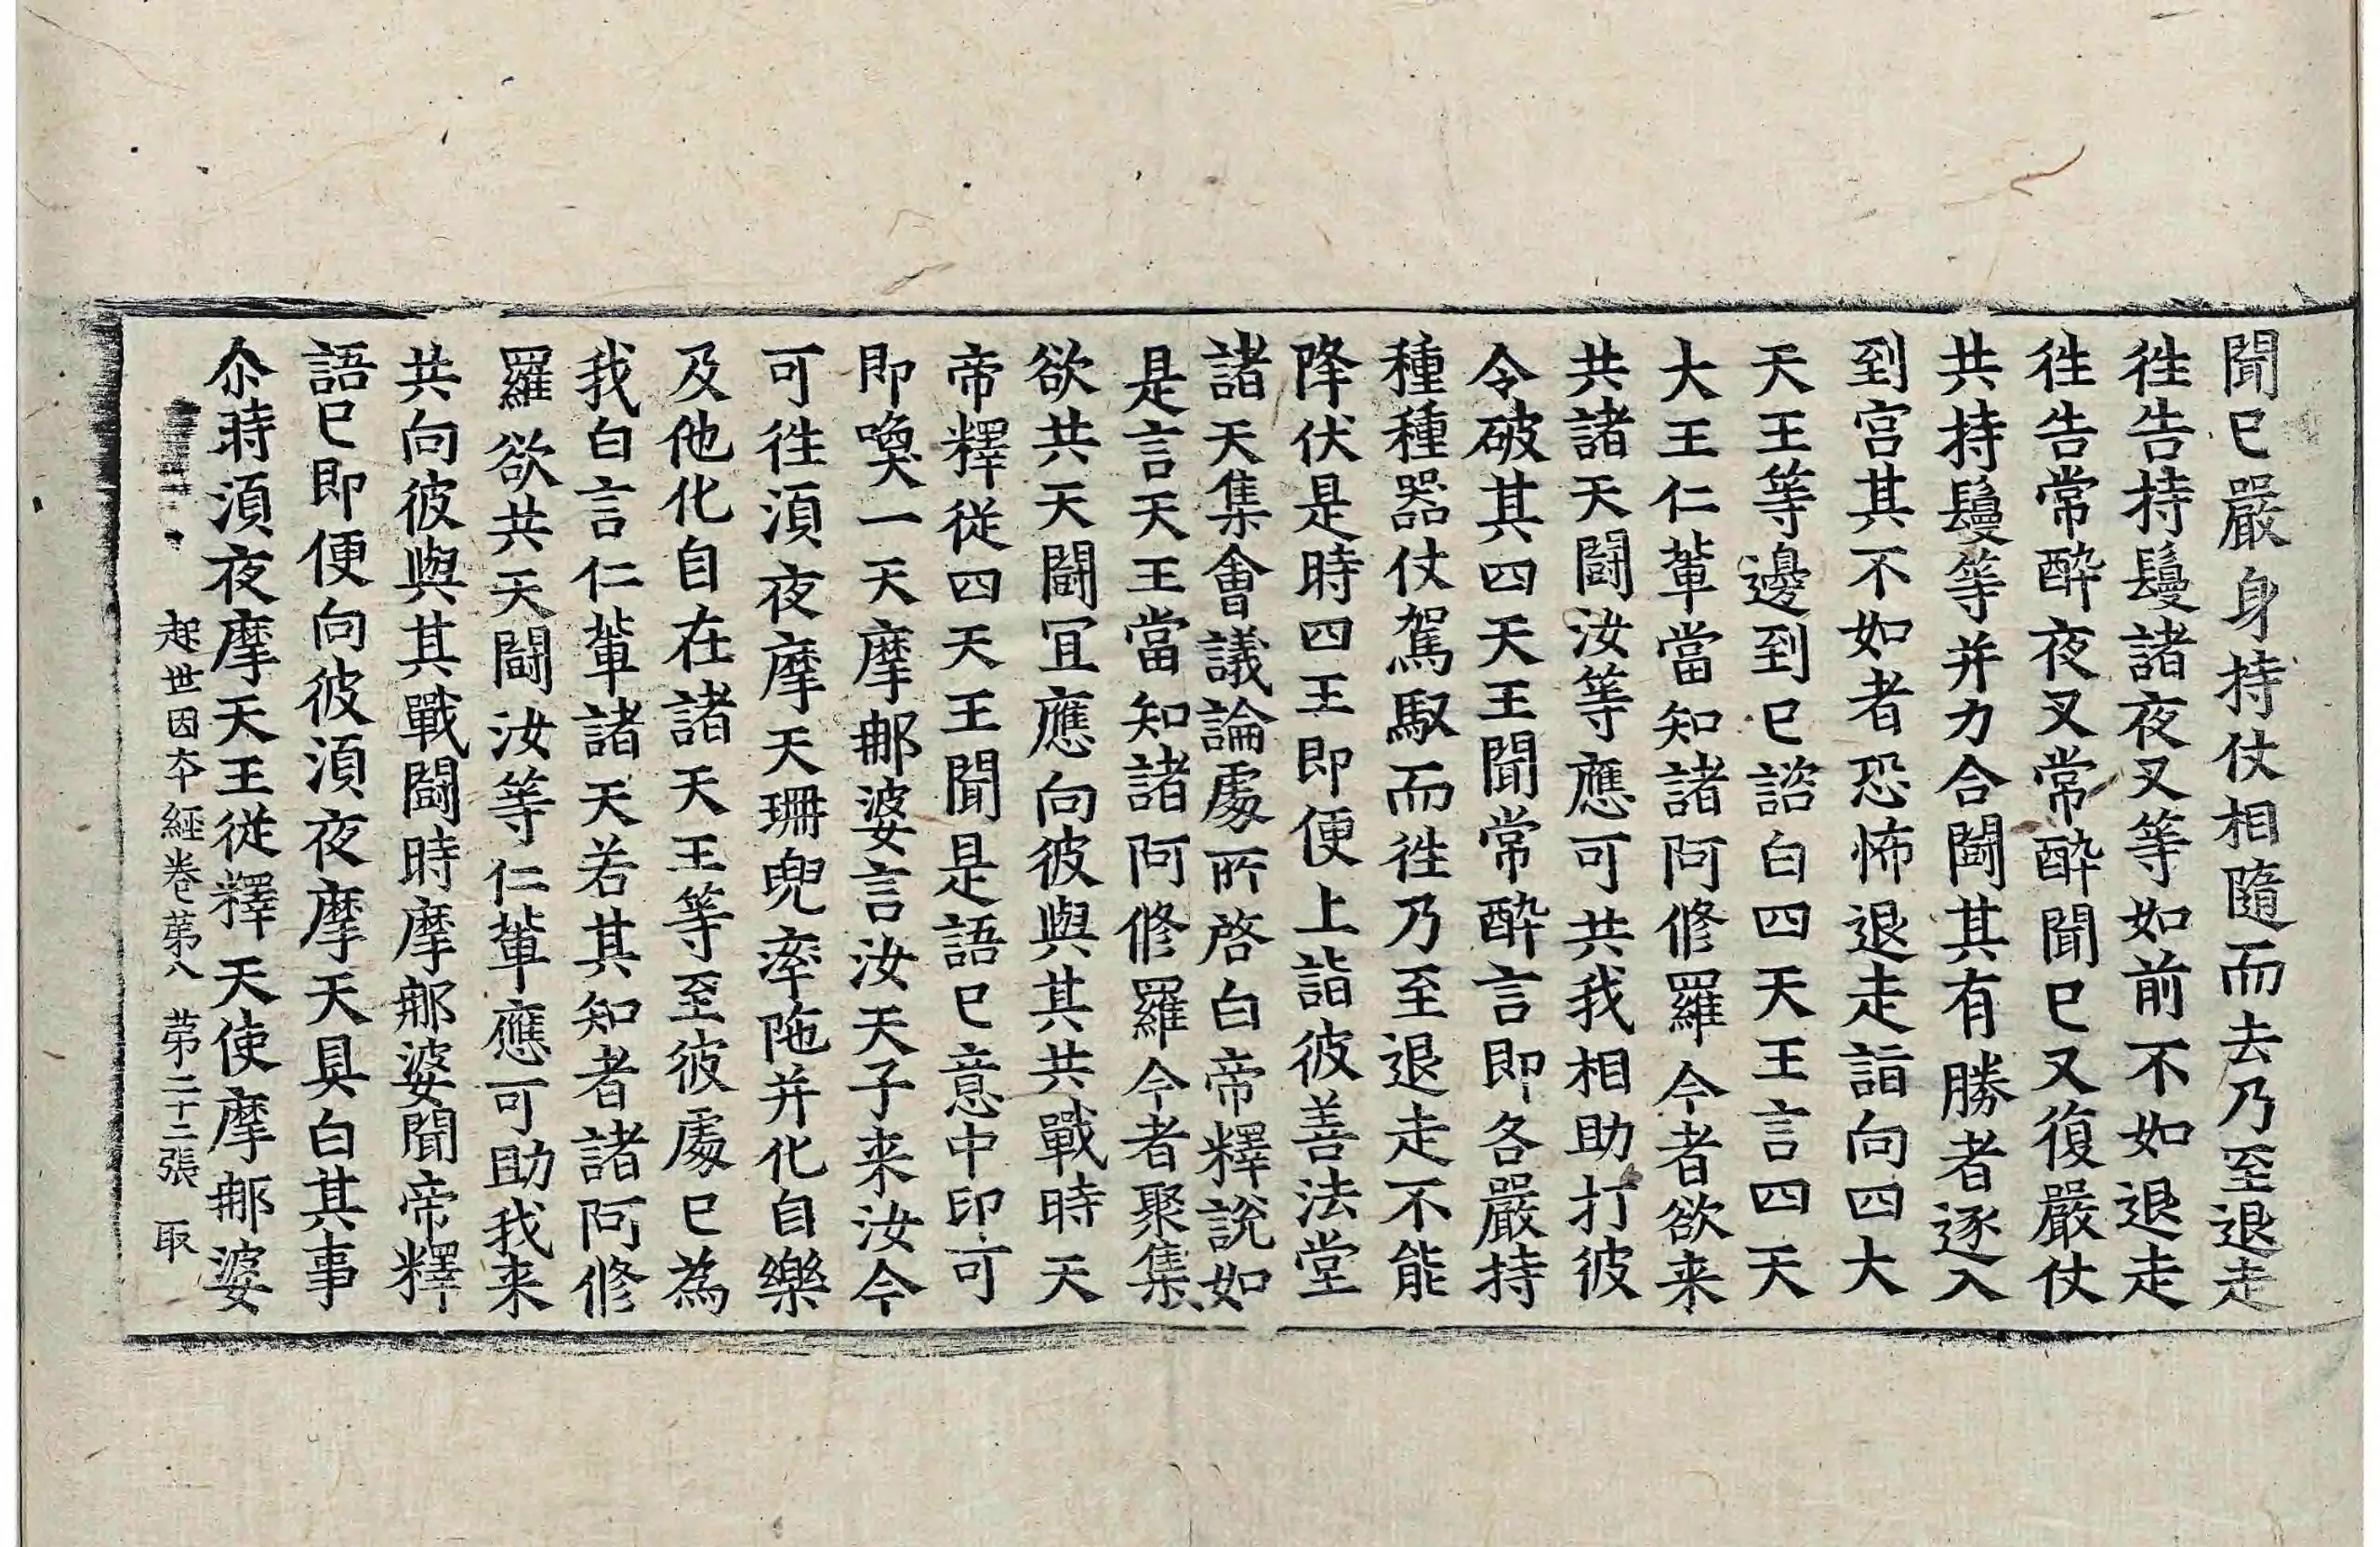 聞已嚴身持仗相隨而去乃至退走
徃告持鬘諸夜叉等如前不如退走
徃告常醉夜叉常醉聞已又復嚴仗
共持鬘等并力合鬪其有勝者逐入
到宮其不如者恐怖退走詣向四大
天王等邊到已諮白四天王言四天
大王仁軰當知諸阿修羅今者欲来
共諸天鬪汝等應可共我相助打彼
令破其四天王聞常醉言即各嚴持
種種器仗駕馭而徃乃至退走不能
降伏是時四王即便上詣彼善法堂
諸天集會議論處所啓白帝釋說如
是言天王當知諸阿修羅今者聚集
欲共天鬪冝應向彼與其共戰時天
帝釋從四天王聞是語已意中印可
即喚一天摩那婆言汝天子来汝今
可徃湏夜摩天珊兜率陁并化自樂
及他化自在諸天王等至彼處已為
我白言仁軰諸天若其知者諸阿修
羅欲共天鬪汝等仁軰應可助我来
共向彼與其戰鬪時摩那婆聞帝釋
語已即便向彼湏夜摩天具白其事
尒時湏夜摩天王從釋天使摩那婆
起世因夲經卷苐八 苐二十二張 取